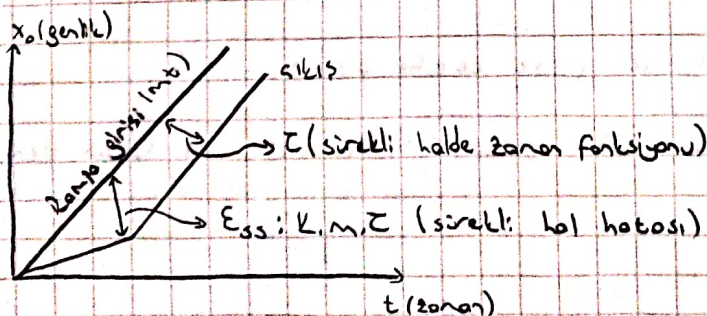 x₀(genlik)
Rampa girişi (m.t)
çıkış
τ (sürekli halde zaman fonksiyonu)
Ess : K.m.τ (sürekli hal hatası)
t (zaman)